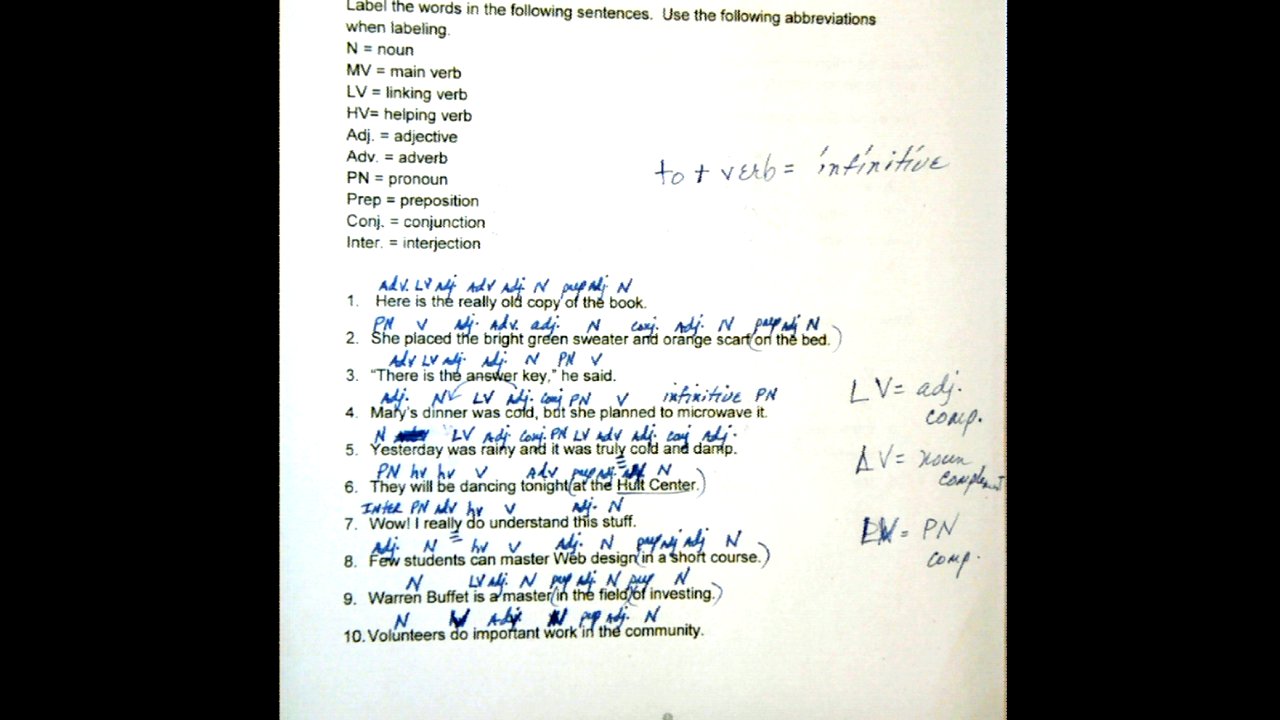 Label the words in the following sentences. Use the following abbreviations
when labeling.
N = noun
MV = main verb
LV = linking verb
HV= helping verb
Adj. = adjective
Adv. = adverb
to + verb = infinitive
PN = pronoun
Prep = preposition
Conj. = conjunction
Inter. = interjection
Adv. LV Adj Adv Adj. N prep Adj. N
1. Here is the really old copy of the book.
PN V Adj. Adv. adj. N conj. Adj. N prep Adj N
2. She placed the bright green sweater and orange scarf (on the bed.)
Adv LV Adj. Adj. N PN V
3. "There is the answer key," he said.
Adj. N LV Adj. conj PN V infinitive PN
4. Mary's dinner was cold, but she planned to microwave it.
LV = adj. comp.
N LV Adj conj. PN LV Adv Adj. conj Adj.
5. Yesterday was rainy and it was truly cold and damp.
LV = noun complement
PN hv hv V Adv prep Adj. N
6. They will be dancing tonight (at the Hult Center.)
INTER PN Adv hv V Adj. N
7. Wow! I really do understand this stuff.
LV = PN comp.
Adj. N hv V Adj. N prep Adj Adj N
8. Few students can master Web design (in a short course.)
N LV Adj. N prep Adj. N prep N
9. Warren Buffet is a master (in the field) (of investing.)
N V Adj N prep Adj. N
10. Volunteers do important work in the community.